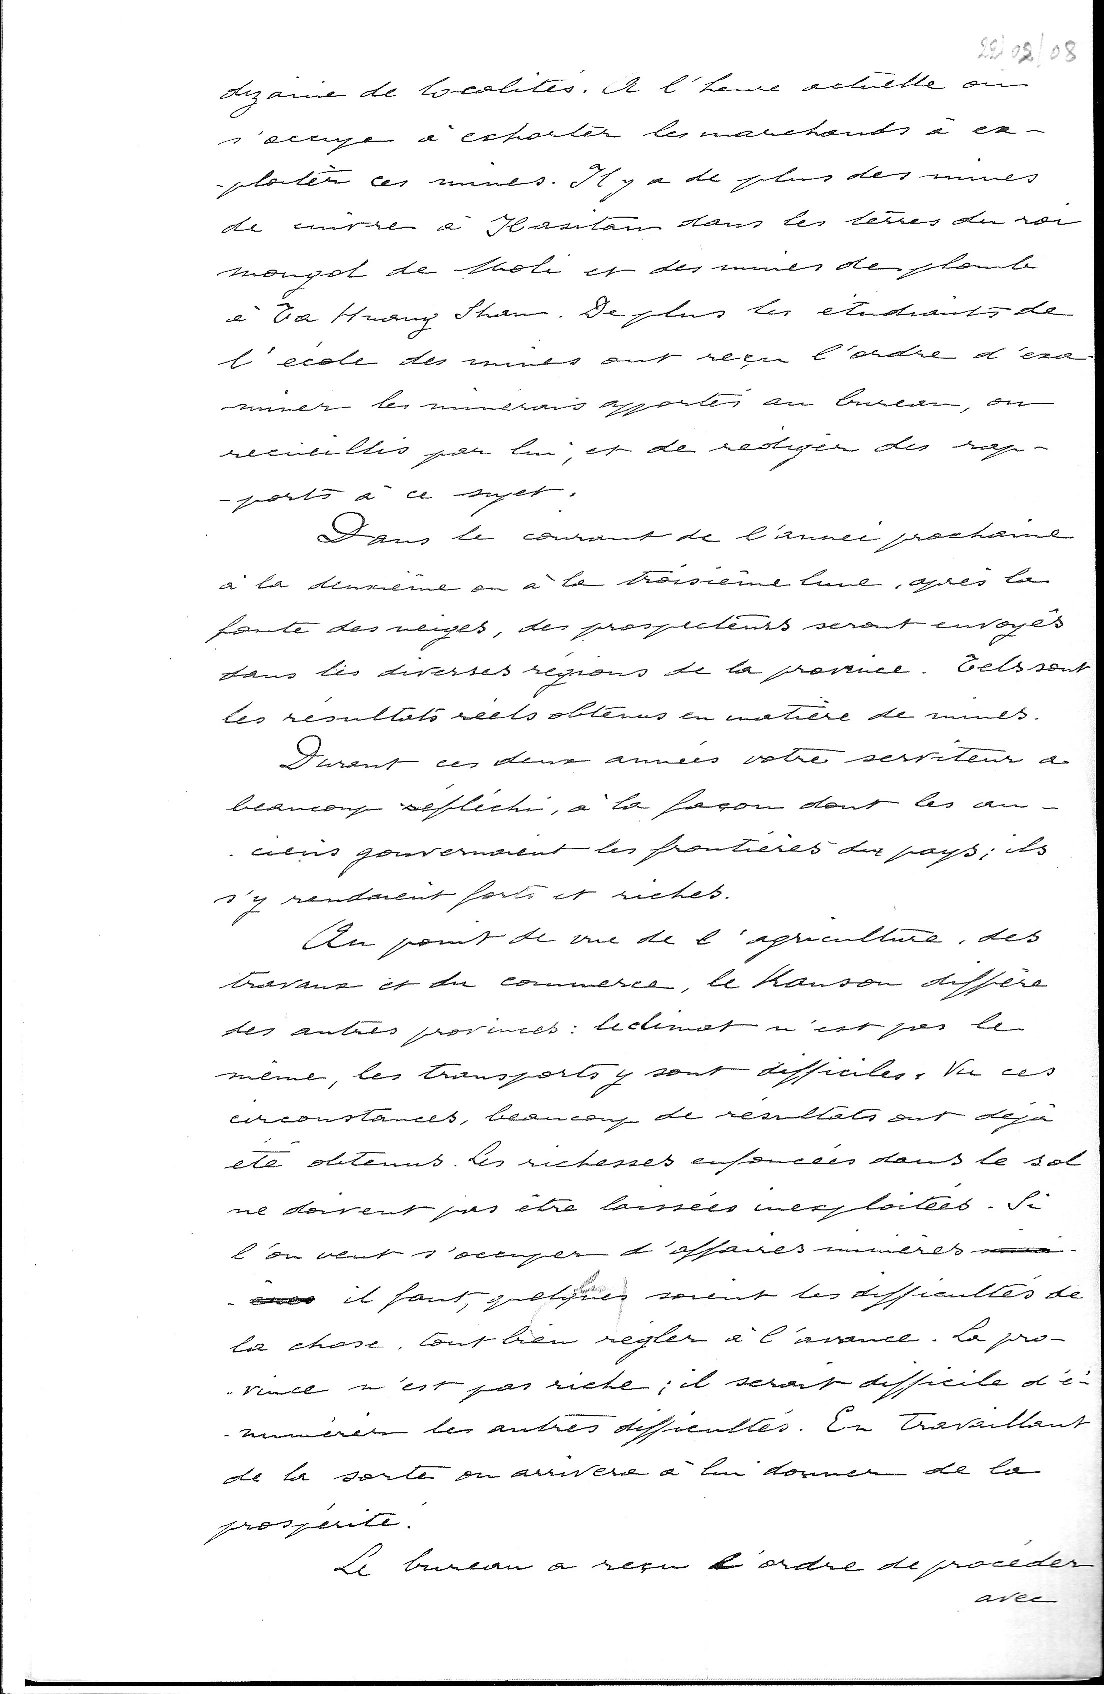 22/02/08
dizaine de localités. A l'heure actuelle on
s'occupe à exhorter les marchands à ex-
-ploiter ces mines. Il y a de plus des mines
de cuivre à Hasitan dans les terres du roi
mongol de Moli et des mines de plomb
à Ta Huang Shan. De plus les étudiants de
l'école des mines ont reçu l'ordre d'exa-
miner les minerais apportés au bureau, ou
recueillis par lui, et de rédiger des rap-
-ports à ce sujet.
Dans le courant de l'année prochaine
à la deuxième ou à la troisième lune, après la
fonte des neiges, des prospecteurs seront envoyés
dans les diverses régions de la province. Tels sont
les résultats réels obtenus en matière de mines.
Durant ces deux années votre serviteur a
beaucoup réfléchi, à la façon dont les an-
-ciens gouvernaient les frontières du pays; ils
s'y rendaient forts et riches.
Au point de vue de l'agriculture, des
travaux et du commerce, le Kansou diffère
des autres provinces: le climat n'est pas le
même, les transports y sont difficiles. Vu ces
circonstances, beaucoup de résultats ont déjà
été obtenus. Les richesses enfoncées dans le sol
ne doivent pas être laissées inexploitées. Si
l'on veut s'occuper d'affaires minières
il faut, quelques soient les difficultés de
la chose, tout bien régler à l'avance. La pro-
-vince n'est pas riche; il serait difficile d'é-
-numérer les autres difficultés. En travaillant
de la sorte on arrivera à lui donner de la
prospérité.
Le bureau a reçu l'ordre de procéder
avec